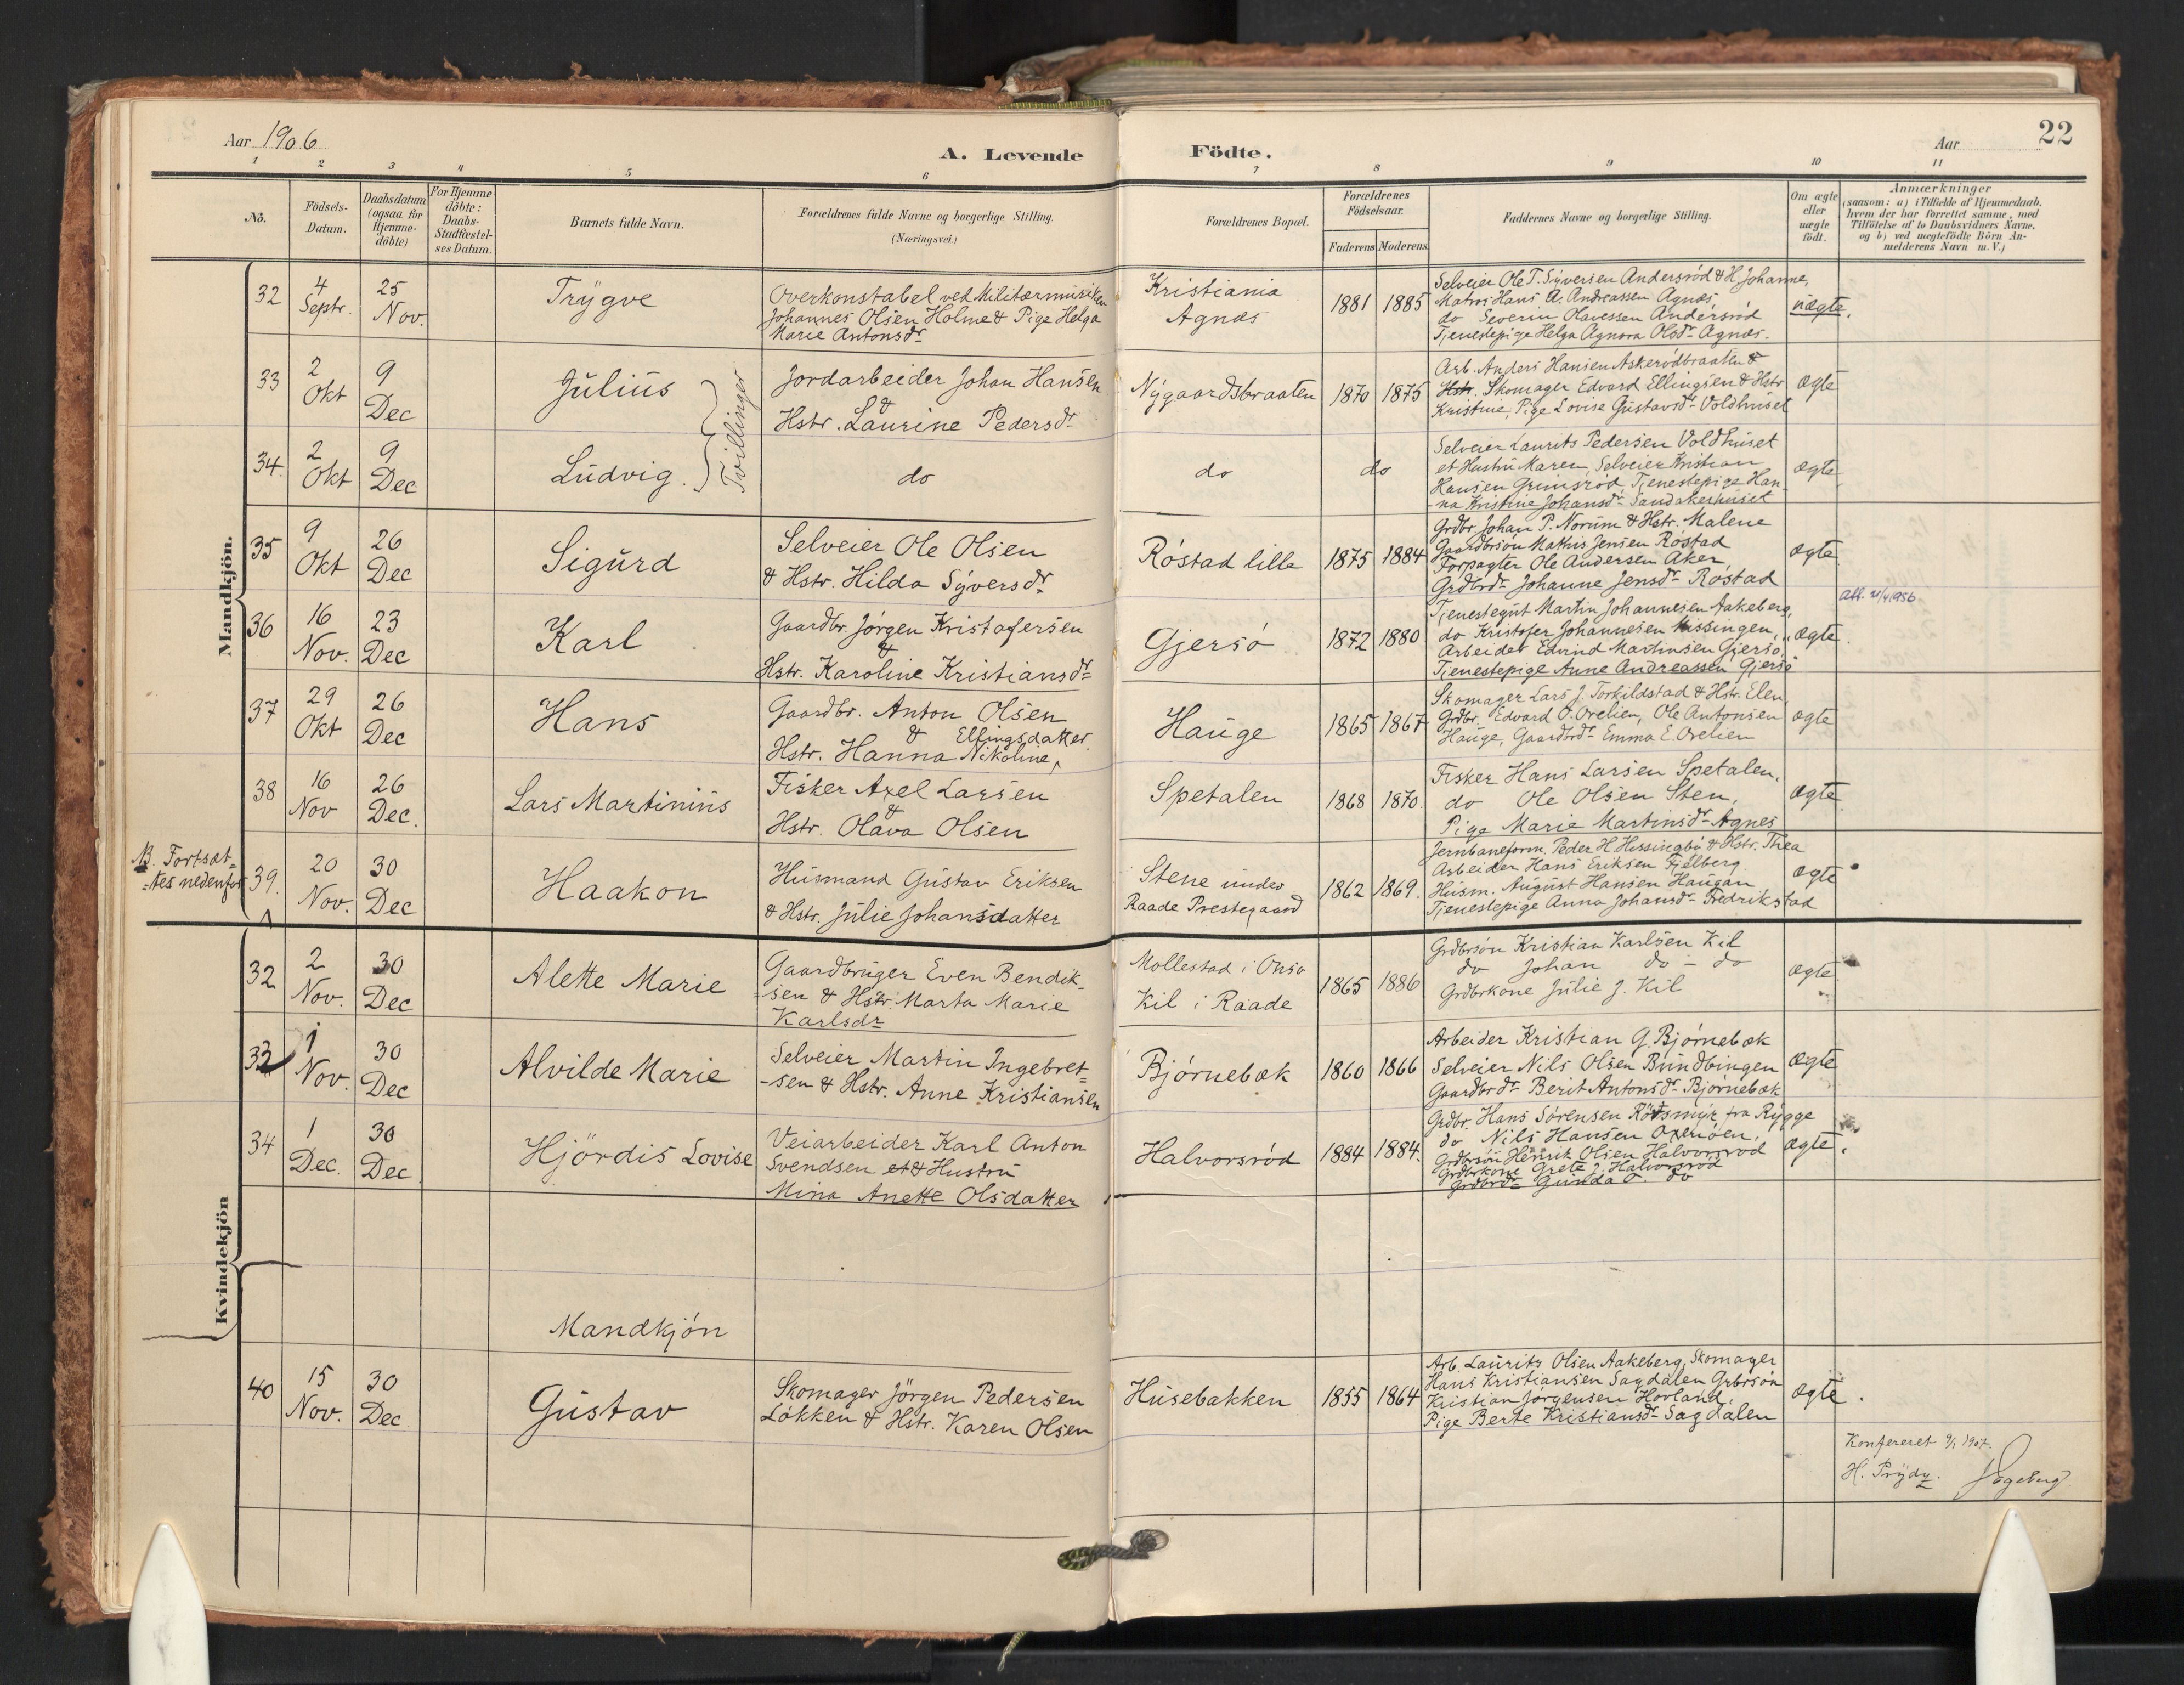 Aar 1906
A. Levende Födte.
Aar
22
1 2 3 4 5 6 7 8 9 10 11
No.
Födsels-Datum.
Daabsdatum (ogsaa for Hjemme-döbte)
For Hjemme döbte: Daabs-Stadfæstel-ses Datum.
Barnets fulde Navn.
Forældrenes fulde Navne og borgerlige Stilling.
(Næringsvei.)
Forældrenes Bopæl.
Forældrenes Födselsaar.
Faderens Moderens
Faddernes Navne og borgerlige Stilling.
Om ægte eller uægte födt.
Anmærkninger
(saasom: a) i Tilfælde af Hjemmedaab.
hvem der har forrettet samme, med
Tilföielse af to Daabsvidners Navne.
og b) ved uægtefödte Börn An-
melderens Navn m.V.)
Mandkjön.
32
4 Septr.
25 Nov.
Trygve
Overkonstabel ved Militærmusiken
Johannes Olsen Holme & Pige Helga
Marie Antonsdr
Kristiania
Agnæs
1881 1885
Selveier Ole T. Syversen Andersröd & H. Johanne,
Matros Hans A. Andreassen Agnæs,
do Severin Olavessen Andersröd
Tjenestepige Helga Agnora Olsdr Agnæs.
uægte.
33
2 Okt
9 Dec
Julius
Tvillinger
Jordarbeider Johan Hansen
&
Hstr. Laurine Pedersdr
Nygaardsbraaten
1870 1875
Arb. Anders Hansen Askerödbraaten &
Hstr. Skomager Edvard Ellingsen & Hstr
Kristine, Pige Lovise Gustavsdr Voldhuset
ægte
34.
2 Okt
9 Dec
Ludvig.
do
do
do
Selveier Laurits Pedersen Voldhuset
et Hustru Maren, Selveier Kristian
Hansen Grimsröd Tjenestepige Han-
na Kristine Johansdr Sandakerhuset
ægte
35
9 Okt
26 Dec
Sigurd
Selveier Ole Olsen
& Hstr. Hilda Syversdr
Röstad lille
1875 1884
Grdbr. Johan P. Norum & Hstr. Malene
Gaardbrsön Mathis Jensen Röstad
Forpagter Ole Andersen Aker,
Grdbrdr Johanne Jensdr Röstad
ægte
36
16 Nov.
23 Dec
Karl
Gaardbr. Jörgen Kristofersen
&
Hstr. Karoline Kristiansdr
Gjersö
1872 1880
Tjenestegut Martin Johannesen Aakeberg,
do Kristofer Johannesen Missingen,
Arbeider Edvind Martinsen Gjersö,
Tjenestepige Anne Andreassen Gjersö
ægte.
att. 21/4 1956
37
29 Okt
26 Dec
Hans
Gaardbr. Anton Olsen
& Ellingsdatter
Hstr. Hanna Nikoline,
Hauge
1865 1867
Skomager Lars J. Torkildstad & Hstr. Elen,
Grdbr. Edvard O. Orelien, Ole Antonsen
Hauge, Gaardbrdr Emma E. Orelien
ægte
38
16 Nov
26 Dec.
Lars Martinius
Fisker Axel Larsen
&
Hstr. Olava Olsen
Spetalen
1868 1870
Fisker Hans Larsen Spetalen,
do Ole Olsen Sten,
Pige Marie Martinsdr Agnes
ægte
NB. Fortsæt=
=tes nedenfor
39.
20 Nov.
30 Dec
Haakon
Husmand Gustav Eriksen
& Hstr. Julie Johansdatter
Stene under
Raade Prestegaard
1862 1869.
Jernbaneform. Peder H. Hissingby & Hstr. Thea
Arbeider Hans Eriksen Fjelberg
Husm. August Hansen Haugan
Tjenestepige Anna Johansdr Fredrikstad
ægte
Kvindekjön
32
2 Nov.
30 Dec
Alette Marie
Gaardbruger Even Bendik-
sen & Hstr. Marta Marie
Karlsdr
Mollestad i Onsö
Kil i Raade
1865 1886
Grdbrsön Kristian Karlsen Kil
do Johan do - do
Grdbrkone Julie J. Kil
ægte
33
1 Nov.
30 Dec
Alvilde Marie
Selveier Martin Ingebret=
-sen & Hstr. Anne Kristiansen
Björnebæk
1860 1866
Arbeider Kristian G. Björnebæk
Selveier Nils Olsen Bundbingen
Gaardbrdr Berit Antonsdr Björnebæk
ægte
34
1 Dec.
30 Dec.
Hjördis Lovise
Veiarbeider Karl Anton
Svendsen et & Hustru
Mina Anette Olsdatter
Halvorsröd
1884 1884.
Grdbr. Hans Sörensen Rödsmyr fra Rygge
do Nils Hansen Oxenöen,
Grdbrsön Henrik Olsen Halvorsröd
Grdbrkone Grete J. Halvorsröd
Grdbrdr Gunda O. do
ægte.
Mandkjön
40
15 Nov.
30 Dec
Gustav
Skomager Jörgen Pedersen
Lökken & Hstr. Karen Olsen
Husebakken
1855 1864
Arb. Lauritz Olsen Aakeberg, Skomager
Hans Kristiansen Sagdalen Grbrsön
Kristian Jörgensen Hovland,
Pige Berte Kristiansdr Sagdalen
ægte.
Konfereret 9/1 1907.
H. Prydz.